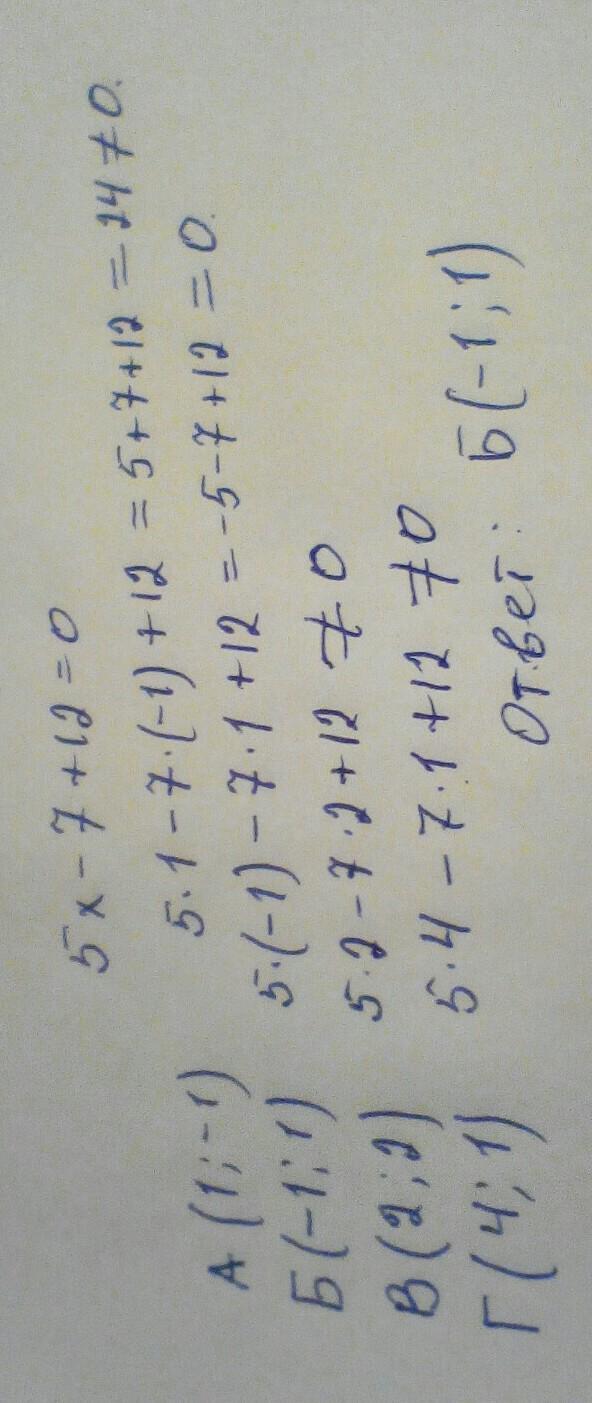 5x - 7 + 12 = 0
А (1; -1) 5·1 - 7·(-1) + 12 = 5 + 7 + 12 = 24 ≠ 0.
Б (-1; 1) 5·(-1) - 7·1 + 12 = -5 - 7 + 12 = 0.
В (2; 2) 5·2 - 7·2 + 12 ≠ 0
Г (4; 1) 5·4 - 7·1 + 12 ≠ 0
Ответ: Б (-1; 1)